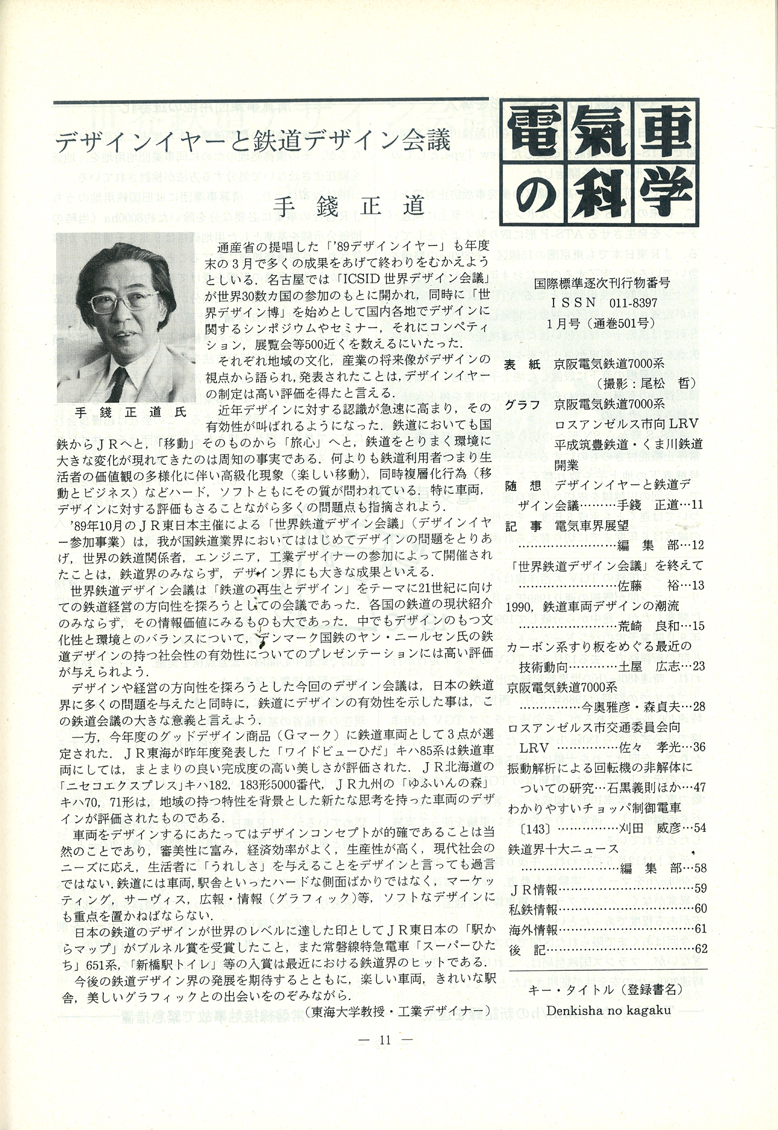 デザインイヤーと鉄道デザイン会議
手錢正道
手錢正道氏
通産省の提唱した「'89デザインイヤー」も年度
末の3月で多くの成果をあげて終わりをむかえよう
としいる．名古屋では「ICSID世界デザイン会議」
が世界30数カ国の参加のもとに開かれ，同時に「世
界デザイン博」を始めとして国内各地でデザインに
関するシンポジウムやセミナー，それにコンペティ
ション，展覧会等500近くを数えるにいたった．
それぞれ地域の文化，産業の将来像がデザインの
視点から語られ，発表されたことは，デザインイヤー
の制定は高い評価を得たと言える．
近年デザインに対する認識が急速に高まり，その
有効性が叫ばれるようになった．鉄道においても国
鉄からJRへと，「移動」そのものから「旅心」へと，鉄道をとりまく環境に
大きな変化が現れてきたのは周知の事実である．何よりも鉄道利用者つまり生
活者の価値観の多様化に伴い高級化現象（楽しい移動），同時複層化行為（移
動とビジネス）などハード，ソフトともにその質が問われている．特に車両，
デザインに対する評価もさることながら多くの問題点も指摘されよう．
'89年10月のJR東日本主催による「世界鉄道デザイン会議」（デザインイヤ
ー参加事業）は，我が国鉄道業界においてははじめてデザインの問題をとりあ
げ，世界の鉄道関係者，エンジニア，工業デザイナーの参加によって開催され
たことは，鉄道界のみならず，デザイン界にも大きな成果といえる．
世界鉄道デザイン会議は「鉄道の再生とデザイン」をテーマに21世紀に向け
ての鉄道経営の方向性を探ろうとしての会議であった．各国の鉄道の現状紹介
のみならず，その情報価値にみるものも大であった．中でもデザインのもつ文
化性と環境とのバランスについて，デンマーク国鉄のヤン・ニールセン氏の鉄
道デザインの持つ社会性の有効性についてのプレゼンテーションには高い評価
が与えられよう．
デザインや経営の方向性を探ろうとした今回のデザイン会議は，日本の鉄道
界に多くの問題を与えたと同時に，鉄道にデザインの有効性を示した事は，こ
の鉄道会議の大きな意義と言えよう．
一方，今年度のグッドデザイン商品（Gマーク）に鉄道車両として3点が選
定された．JR東海が昨年度発表した「ワイドビューひだ」キハ85系は鉄道車
両にしては，まとまりの良い完成度の高い美しさが評価された．JR北海道の
「ニセコエクスプレス」キハ182，183形5000番代，JR九州の「ゆふいんの森」
キハ70，71形は，地域の持つ特性を背景とした新たな思考を持った車両のデザ
インが評価されたものである．
車両をデザインするにあたってはデザインコンセプトが的確であることは当
然のことであり，審美性に富み，経済効率がよく，生産性が高く，現代社会の
ニーズに応え，生活者に「うれしさ」を与えることをデザインと言っても過言
ではない．鉄道には車両，駅舎といったハードな側面ばかりではなく，マーケッ
ティング，サーヴィス，広報・情報（グラフィック）等，ソフトなデザインに
も重点を置かねばならない．
日本の鉄道のデザインが世界のレベルに達した印としてJR東日本の「駅か
らマップ」がブルネル賞を受賞したこと，また常磐線特急電車「スーパーひた
ち」651系，「新橋駅トイレ」等の入賞は最近における鉄道界のヒットである．
今後の鉄道デザイン界の発展を期待するとともに，楽しい車両，きれいな駅
舎，美しいグラフィックとの出会いをのぞみながら．
（東海大学教授・工業デザイナー）
電氣車
の科学
国際標準逐次刊行物番号
ISSN 011-8397
1月号（通巻501号）
表紙 京阪電気鉄道7000系
（撮影：尾松 哲）
グラフ 京阪電気鉄道7000系
ロスアンゼルス市向LRV
平成筑豊鉄道・くま川鉄道
開業
随想 デザインイヤーと鉄道デ
ザイン会議………手錢 正道…11
記事 電気車界展望
………………………編集部…12
「世界鉄道デザイン会議」を終えて
………………………佐藤 裕…13
1990，鉄道車両デザインの潮流
………………………荒崎 良和…15
カーボン系すり板をめぐる最近の
技術動向…………土屋 広志…23
京阪電気鉄道7000系
……………今奥雅彦・森貞夫…28
ロスアンゼルス市交通委員会向
LRV ……………佐々 孝光…36
振動解析による回転機の非解体に
ついての研究…石黒義則ほか…47
わかりやすいチョッパ制御電車
〔143〕……………刈田 威彦…54
鉄道界十大ニュース
………………………編集部…58
JR情報………………………59
私鉄情報………………………60
海外情報………………………61
後記………………………62
キー・タイトル（登録書名）
Denkisha no kagaku
— 11 —